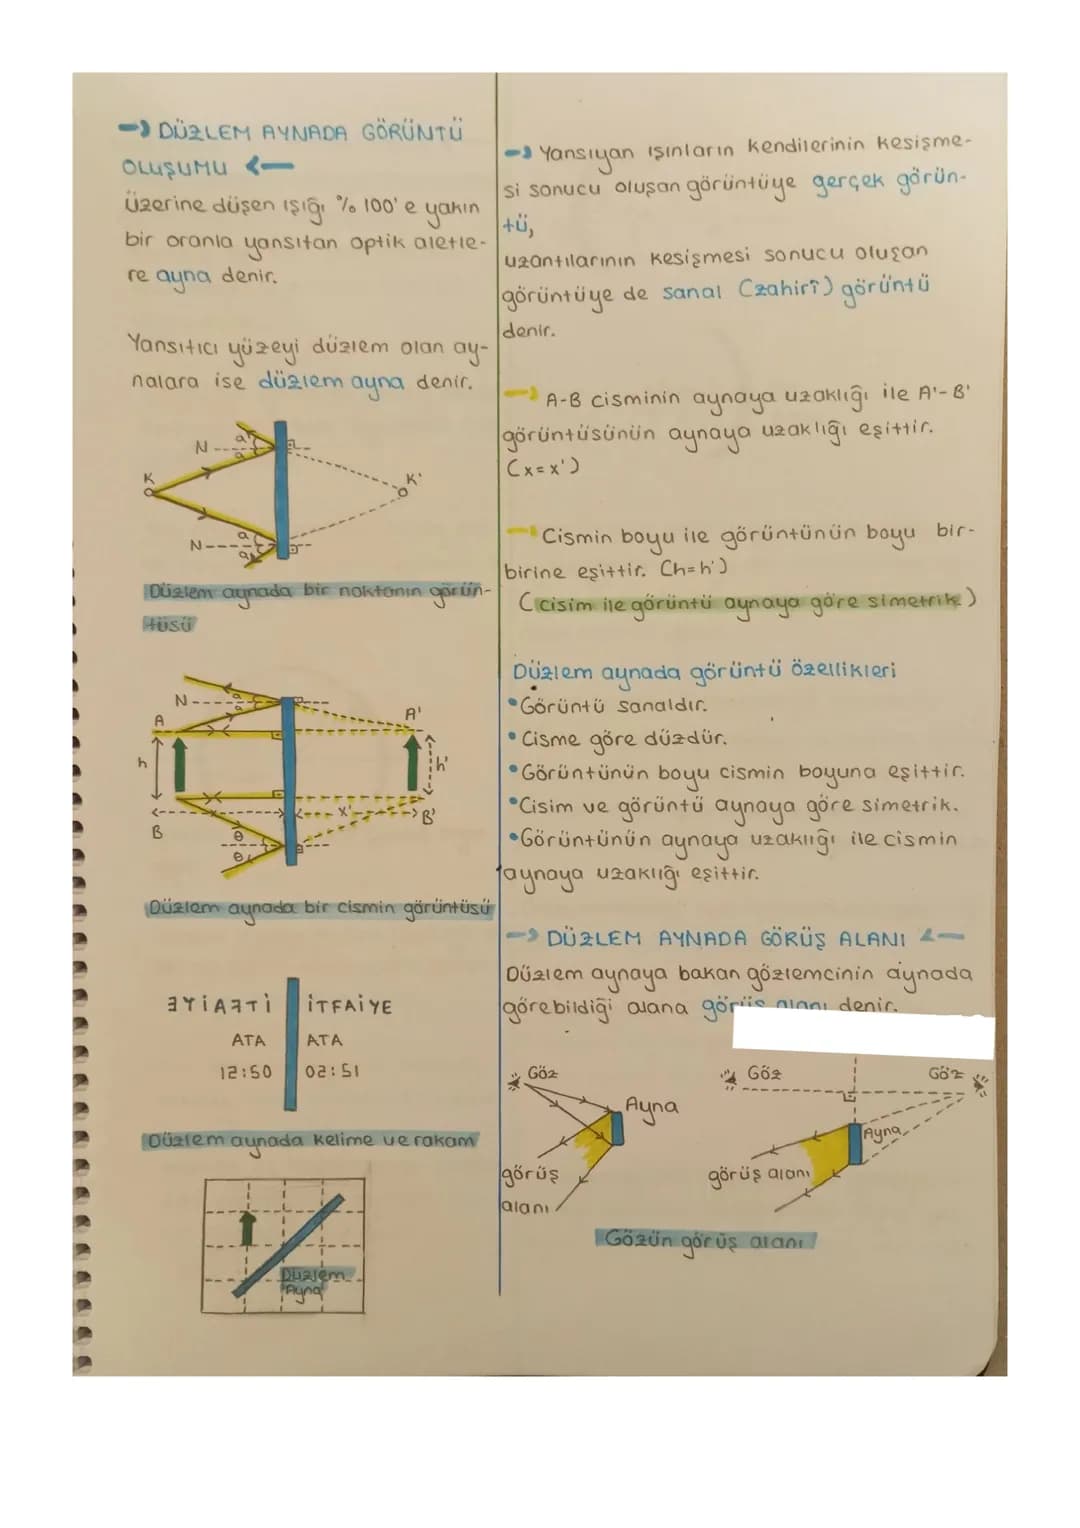 DÜZLEM AYNADA GÖRÜNTÜ
OLUŞUMU
Üzerine düşen ışığı % 100'e yakın
bir oranla yansıtan optik aletle-
re ayna denir.
Yansıtıcı yüzeyi düzlem olan ay-
nalara ise düzlem ayna denir.
N
a
a
K
K'
N
a
a
Düzlem aynada bir noktanın görün-
tüsü
N
a
a
A
A'
h
h'
x'
B
B'
θ
θ
Düzlem aynada bir cismin görüntüsü
ƎYİAꟻTİ İTFAİYE
ATA ATA
12:50 02:51
Düzlem aynada kelime ve rakam
Düzlem
Ayna
Yansıyan ışınların kendilerinin kesişme-
si sonucu oluşan görüntüye gerçek görün-
tü,
uzantılarının kesişmesi sonucu oluşan
görüntüye de sanal (zahirî) görüntü
denir.
A-B cisminin aynaya uzaklığı ile A'-B'
görüntüsünün aynaya uzaklığı eşittir.
(x=x')
Cismin boyu ile görüntünün boyu bir-
birine eşittir. (h=h')
(cisim ile görüntü aynaya göre simetrik)
Düzlem aynada görüntü özellikleri
• Görüntü sanaldır.
• Cisme göre düzdür.
• Görüntünün boyu cismin boyuna eşittir.
• Cisim ve görüntü aynaya göre simetrik.
• Görüntünün aynaya uzaklığı ile cismin
aynaya uzaklığı eşittir.
DÜZLEM AYNADA GÖRÜŞ ALANI
Düzlem aynaya bakan gözlemcinin aynada
görebildiği alana görüş alanı denir.
Göz
Ayna
görüş
alanı
Göz
Göz
Ayna
görüş alanı
Gözün görüş alanı